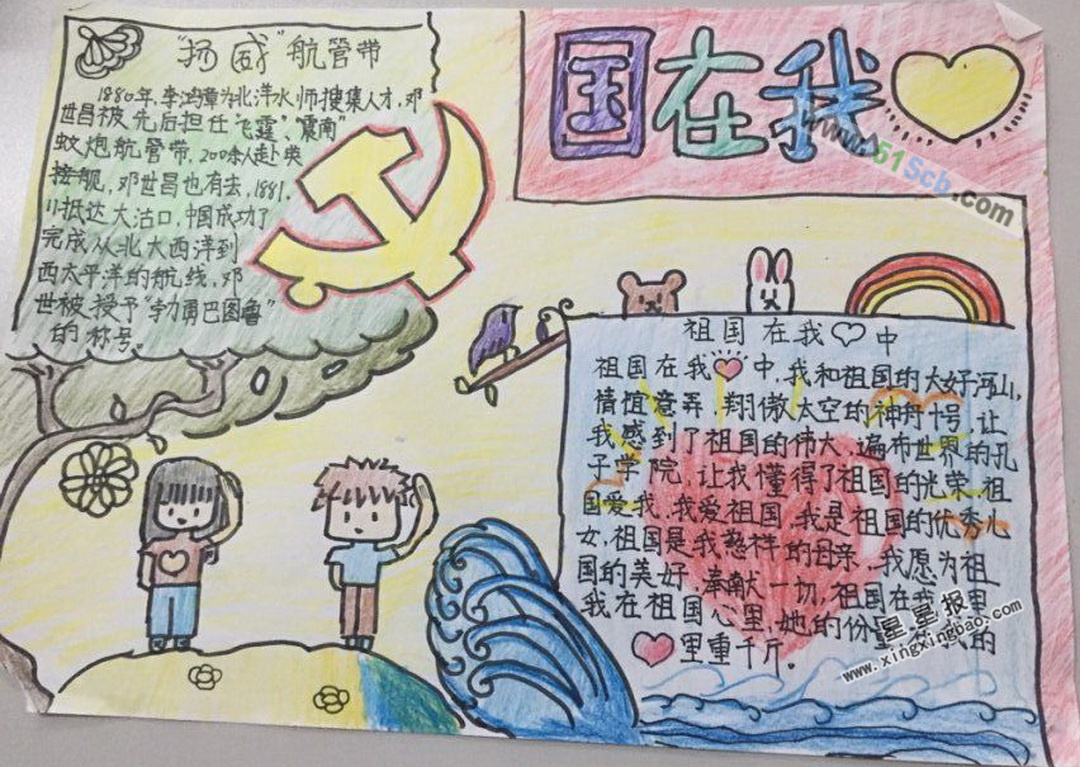 "扬威"航管带
1880年,李鸿章为北洋水师搜集人才,邓
世昌被先后担任"飞霆"、"震南"
蚊炮航管带,200余人赴英
接舰,邓世昌也有去,1881.
11抵达大沽口,中国成功了
完成从北大西洋到
西太平洋的航线,邓
世被授予"勃勇巴图鲁"
的称号。
国在我
www.51Scb.com
祖国在我中
祖国在我中,我和祖国的大好河山,
情谊意弄,翔傲太空的神舟十号,让
我感到了祖国的伟大,遍布世界的孔
子学院,让我懂得了祖国的光荣,祖
国爱我,我爱祖国,我是祖国的优秀儿
女,祖国是我慈祥的母亲,我愿为祖
国的美好,奉献一切,祖国在我里
我在祖国心里,她的份量在我的
里重千斤。
星星报
www.xingxingbao.com